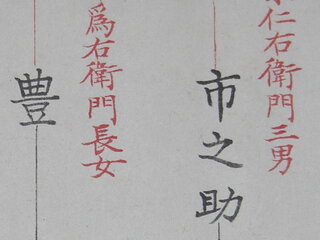 仁右衛門三男
市之助
爲右衛門長女
豊